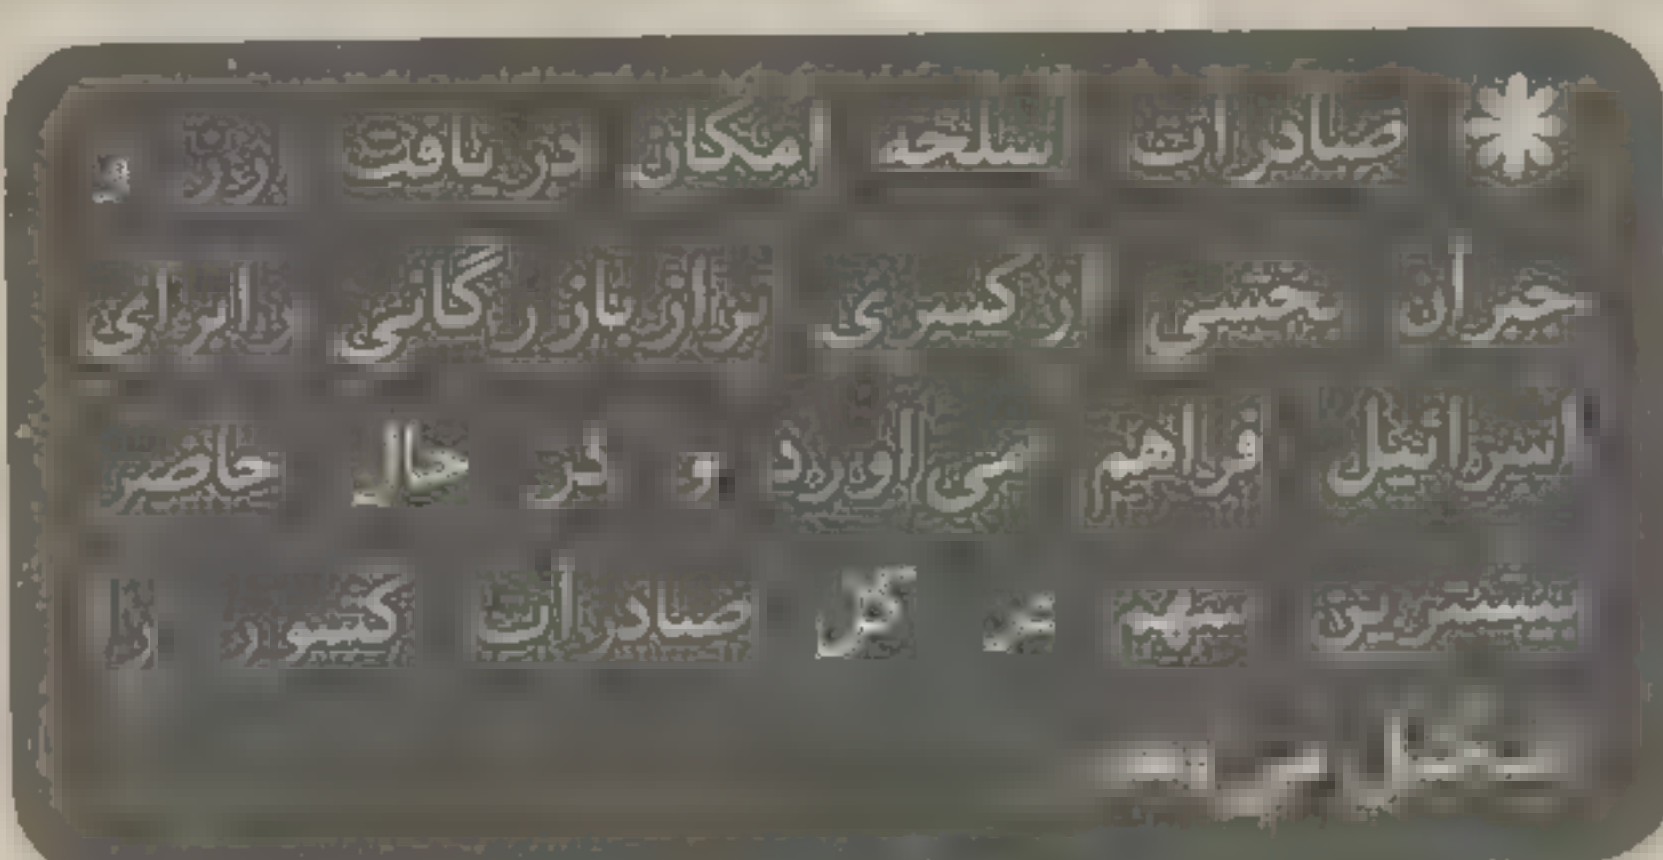 صادرات اسلحه امکان دریافت ارز و
جبران بخشی از کسری تراز بازرگانی را برای
اسرائیل فراهم می‌آورد و در حال حاضر
بیشترین سهم در کل صادرات کشور را